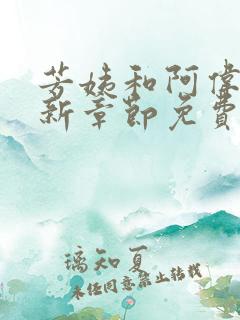 芳姨和阿偉
新章節免費
璃知夏
未经同意禁止转载